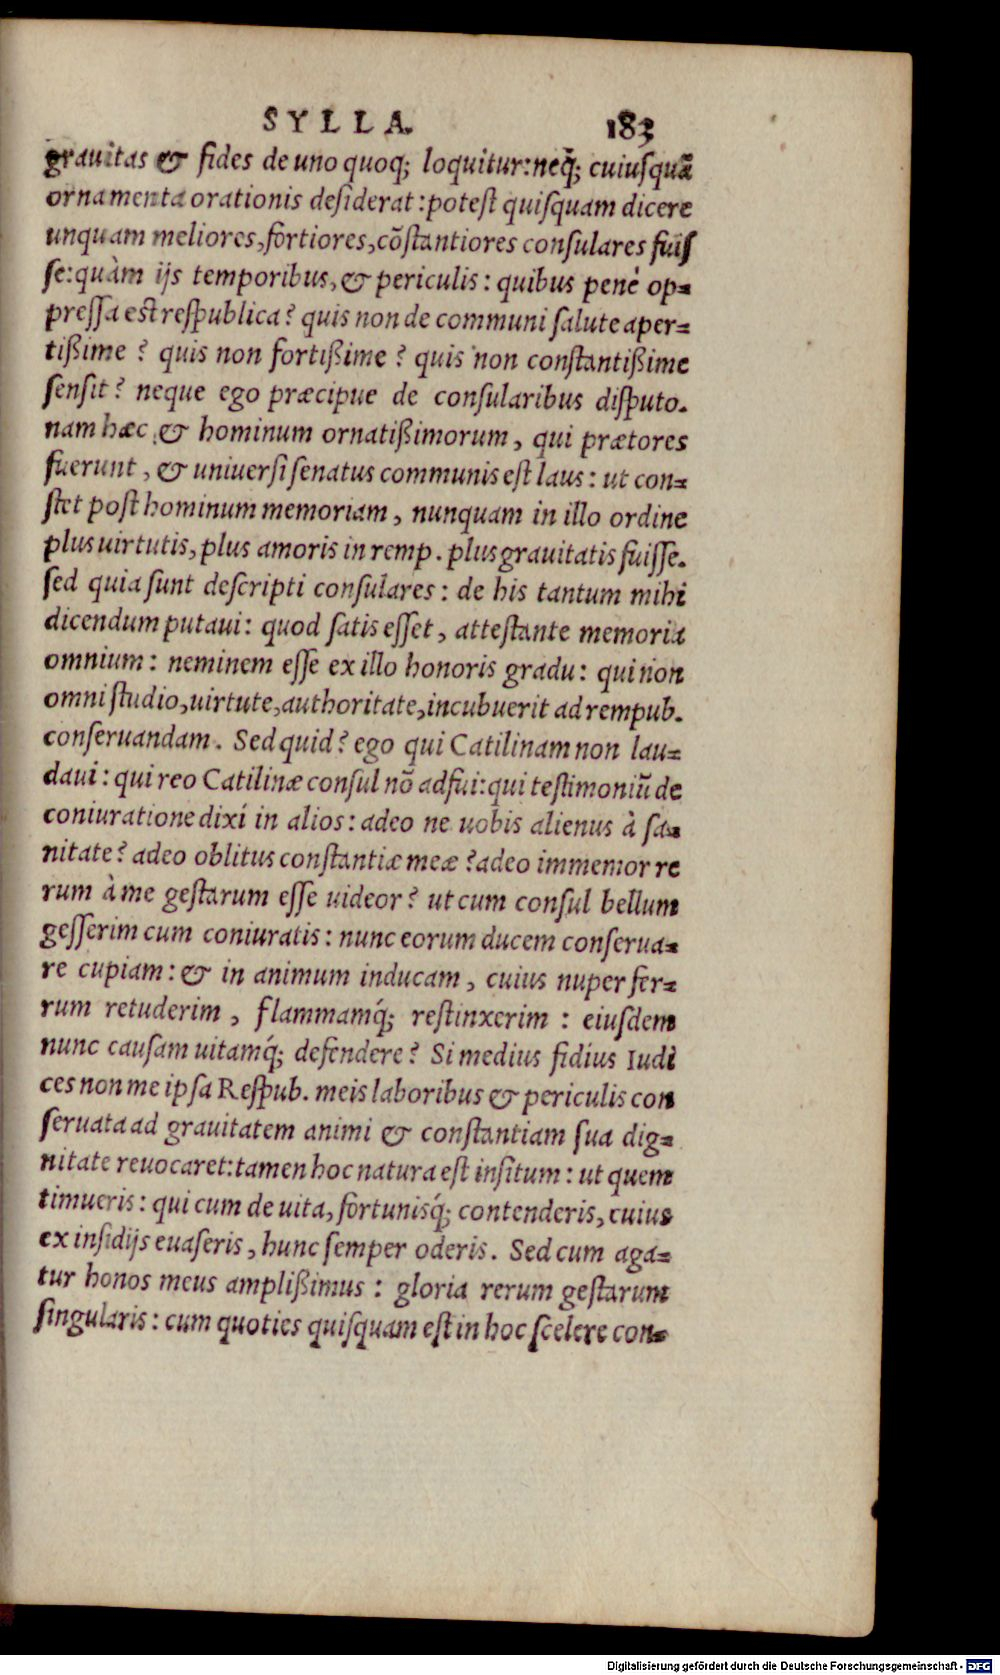 SYLLA. 183
grauitas & fides de uno quoq; loquitur: neq̃; cuiusquã
ornamenta orationis desiderat: potest quisquam dicere
unquam meliores, fortiores, cõstantiores consulares fuis
se: quàm ijs temporibus, & periculis: quibus penè op-
pressa est respublica? quis non de communi salute aper-
tißime? quis non fortißime? quis non constantißime
sensit? neque ego præcipue de consularibus disputo.
nam hæc & hominum ornatißimorum, qui prætores
fuerunt, & uniuersi senatus communis est laus: ut con-
stet post hominum memoriam, nunquam in illo ordine
plus uirtutis, plus amoris in remp. plus grauitatis fuisse.
sed quia sunt descripti consulares: de his tantum mihi
dicendum putaui: quod satis esset, attestante memoria
omnium: neminem esse ex illo honoris gradu: qui non
omni studio, uirtute, authoritate, incubuerit ad rempub.
conseruandam. Sed quid? ego qui Catilinam non lau-
daui: qui reo Catilinæ consul nõ adfui: qui testimoniũ de
coniuratione dixi in alios: adeo ne uobis alienus à sa-
nitate? adeo oblitus constantiæ meæ? adeo immemor re
rum à me gestarum esse uideor? ut cum consul bellum
gesserim cum coniuratis: nunc eorum ducem conserua-
re cupiam: & in animum inducam, cuius nuper fer-
rum retuderim, flammamq́; restinxerim: eiusdem
nunc causam uitamq́; defendere? Si medius fidius Iudi
ces non me ipsa Respub. meis laboribus & periculis con
seruata ad grauitatem animi & constantiam sua dig-
nitate reuocaret: tamen hoc natura est insitum: ut quem
timueris: qui cum de uita, fortunisq́; contenderis, cuius
ex insidijs euaseris, hunc semper oderis. Sed cum aga-
tur honos meus amplißimus: gloria rerum gestarum
singularis: cum quoties quisquam est in hoc scelere con-
Digitalisierung gefördert durch die Deutsche Forschungsgemeinschaft - DFG